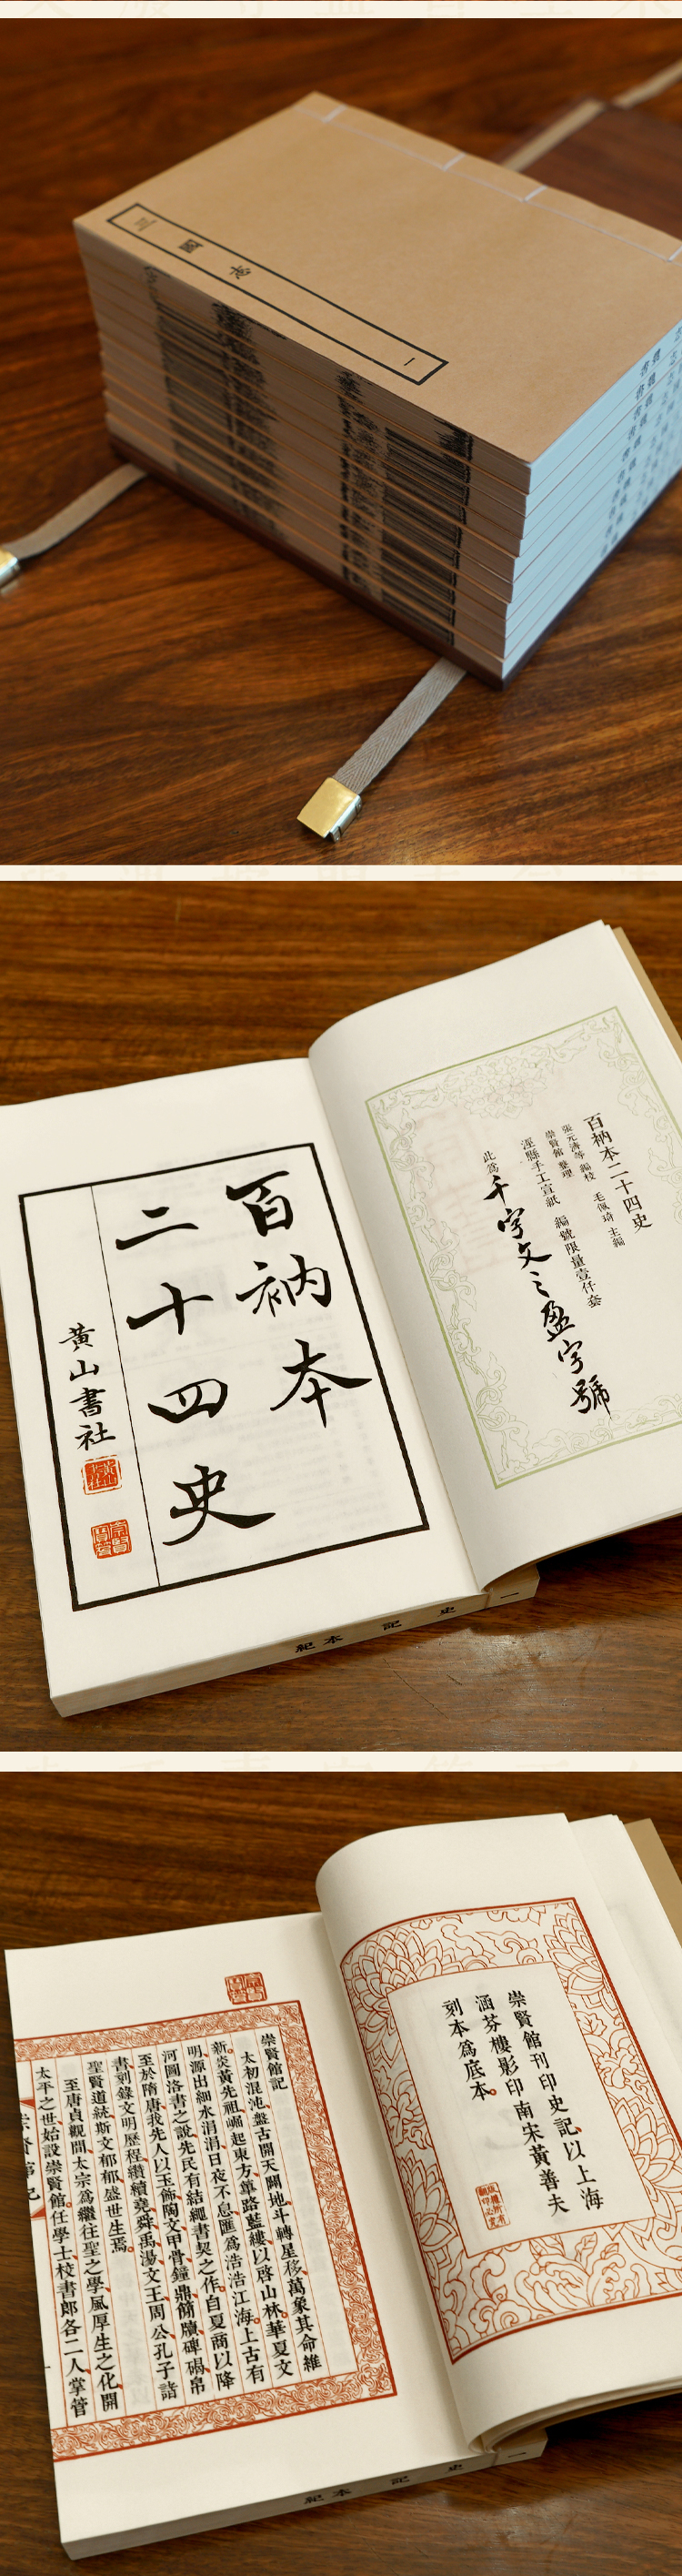 三國志
一
百衲本二十四史
張元濟等 編校 毛佩琦 主編
崇賢館 整理
涇縣手工宣紙 編號限量壹仟套
此為千字文之盈字號
百衲本
二十四史
黃山書社
一 史記 本紀
崇賢館刊印史記以上海
涵芬樓影印南宋黃善夫
刻本為底本
崇賢館記
太初混沌盤古開天闢地斗轉星移萬象其命維
新炎黃先祖崛起東方篳路藍縷以啓山林華夏文
明源出細水涓涓日夜不息匯為浩浩江海上古有
河圖洛書之說先民有結繩書契之作自夏商以降
至於隋唐我先人以玉飾陶文甲骨鐘鼎簡牘碑碣帛
書刻錄文明歷程纘續堯舜禹湯文王周公孔子諸
聖賢道統斯文郁郁盛世生焉
至唐貞觀間太宗為繼往聖之學風厚生之化開
太平之世始設崇賢館任學士校書郎各二人掌管
一 史記 本紀